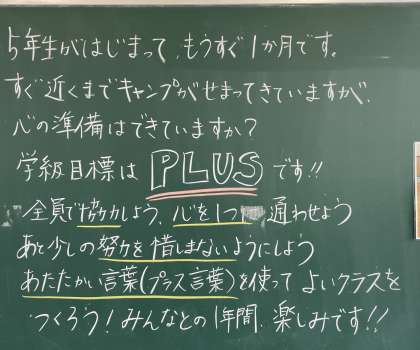 5年生がはじまって、もうすぐ1か月です。
すぐ近くまでキャンプがせまってきていますが、
心の準備はできていますか?
学級目標は PLUS です!!
全員で協力しよう、心を1つ 通わせよう
あと少しの努力を惜しまないようにしよう
あたたかい言葉(プラス言葉)を使って よいクラスを
つくろう!みんなとの1年間、楽しみです!!